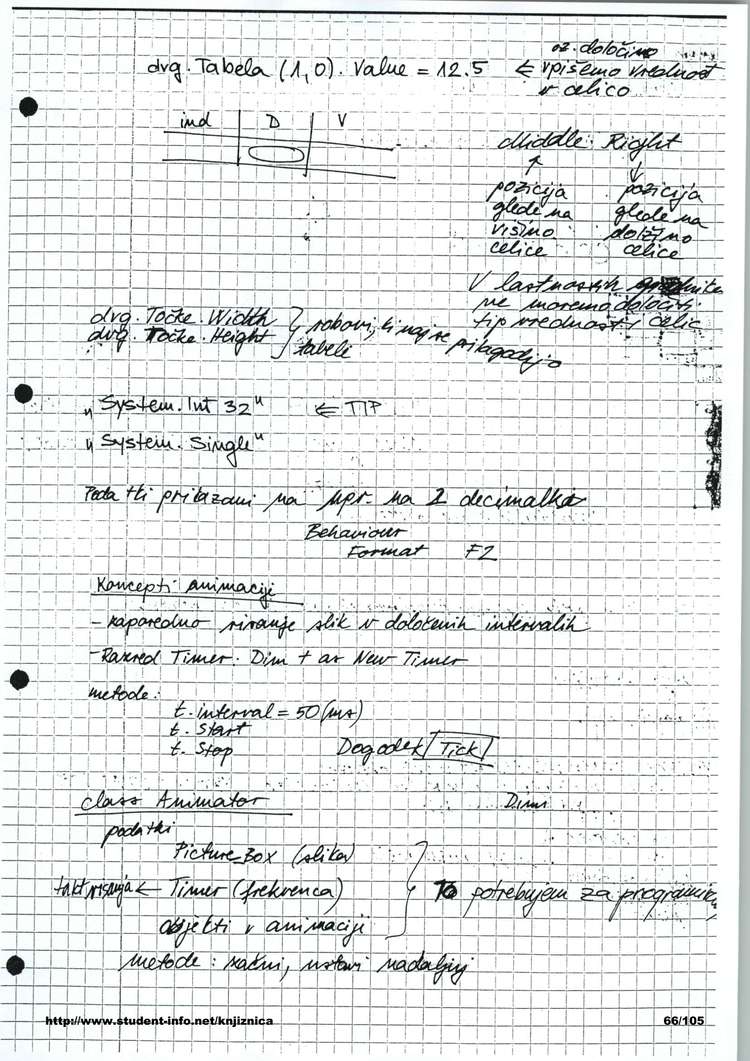 oz. določimo
dvg. Tabela (1,0). Value = 12.5 ⇐ vpišemo vrednost
v celico
ind D V
Middle Right
↑ ↓
pozicija pozicija
glede na glede na
višino dolžino
celice celice
V lastnostih
ne moremo določiti
tip vrednosti celic
dvg. Točke. Width
dvg. Točke. Height
robovi, ki naj se prilagodijo
tabeli
„System. Int 32" ⇐ TIP
„System. Single"
Podatki prikazani na npr. na 2 decimalke
Behaviour
Format F2
Koncepti animacije
- zaporedno risanje slik v določenih intervalih
- Razred Timer: Dim t as New Timer
metode:
t. interval = 50 (ms)
t. Start
t. Stop Dogodek Tick
class Animator Dim
podatki
Picture Box (slika)
takt risanja ← Timer (frekvenca) To potrebujem za
objekti v animaciji
metode: začni, ustavi nadaljuj
http://www.student-info.net/knjiznica 66/105